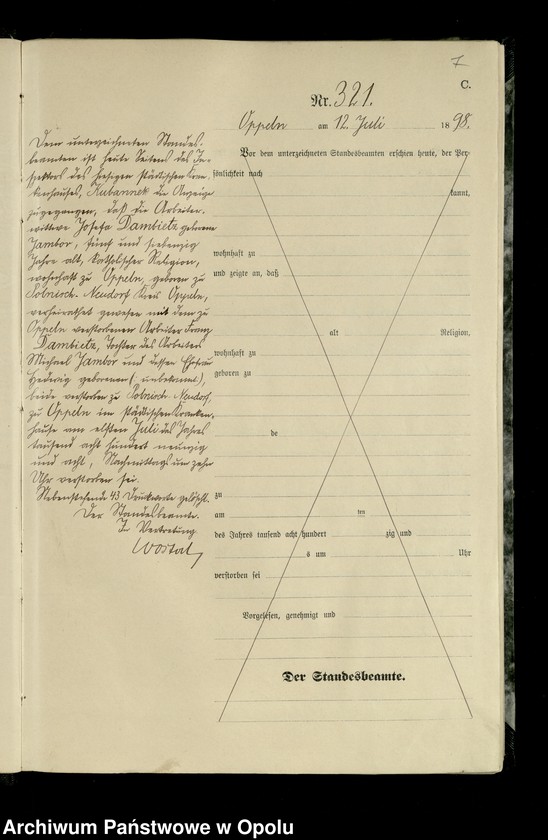 7
C.
Nr. 321.
Oppeln am 12. Juli 1898.
Vor dem unterzeichneten Standesbeamten erschien heute, der Per-
sönlichkeit nach
kannt,
wohnhaft zu
und zeigte an, daß
alt Religion,
wohnhaft zu
geboren zu
de
zu
am ten
des Jahres tausend acht hundert zig und
s um Uhr
verstorben sei
Vorgelesen, genehmigt und
Der Standesbeamte.
Dem unterzeichneten Standes-
beamten ist heute Seitens des In-
spektors des hiesigen städtischen Kran-
kenhauses, Kubannek die Anzeige
zugegangen, daß die Arbeiter-
wittwe Josefa Dambietz geborene
Jambor, fünf und siebenzig
Jahre alt, katholischer Religion,
wohnhaft zu Oppeln, geboren zu
Polnisch-Neudorf Kreis Oppeln,
verheirathet gewesen mit dem zu
Oppeln verstorbenen Arbeiter Franz
Dambietz, Tochter des Arbeiters
Michael Jambor und dessen Ehefrau
Hedwig geborenen (: unbekannt),
beide verstorben zu Polnisch-Neudorf,
zu Oppeln im städtischen Kranken-
hause am elften Juli des Jahres
tausend acht hundert neunzig
und acht, Nachmittags um zehn
Uhr verstorben sei.
Nebenstehende 43 Druckworte gelöscht.
Der Standesbeamte.
In Vertretung
Archiwum Państwowe w Opolu